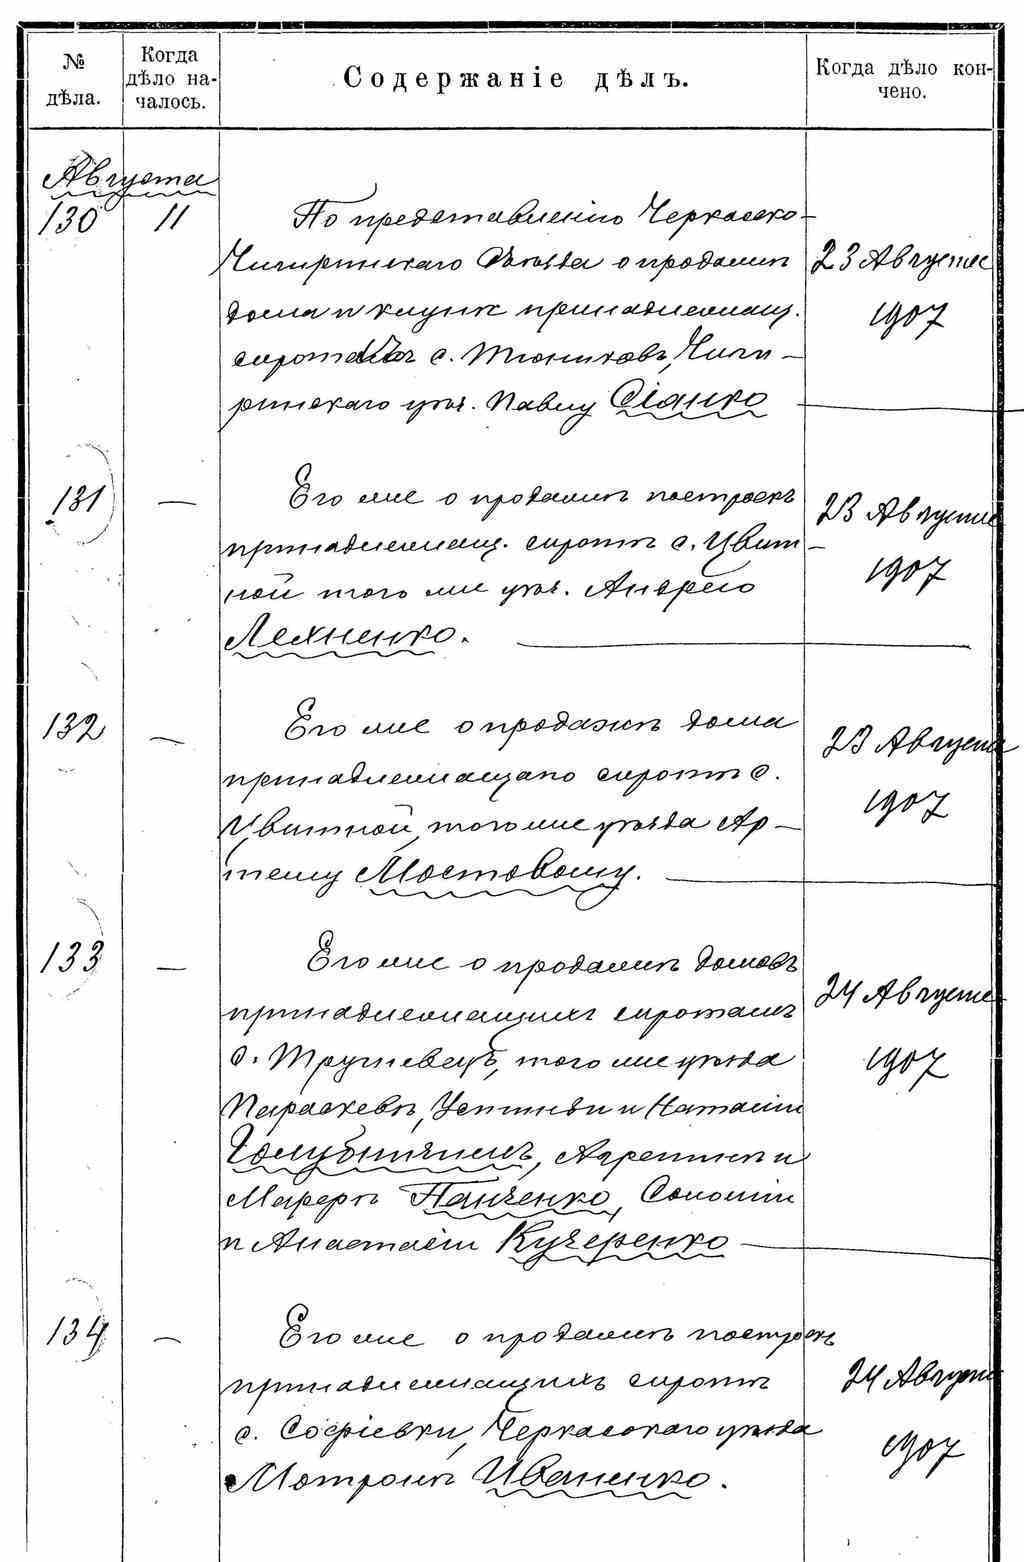 № дѣла.
Когда дѣло на-
чалось.
Содержаніе дѣлъ.
Когда дѣло кон-
чено.
Августа
130 11 По представленію Черкасско-
Чигиринскаго Съѣзда о продажѣ
23 Августа
дома и принадлежащ.
1907
сиротамъ с. Тюньковъ, Чиги-
ринскаго уѣз. Павлу Сіанко
131 — Его же о продажѣ построекъ
23 Августа
принадлежащ. сиротѣ с. Цвѣт-
1907
ной того же уѣз. Андрею
Лехненко.
132 — Его же о продажѣ дома
23 Августа
принадлежащаго сиротѣ с.
1907
Цвѣтной, того же уѣзда Ар-
тему Мостовому.
133 — Его же о продажѣ домовъ
24 Августа
принадлежащихъ сиротамъ
с. Трушевецъ, того же уѣзда
1907
Параскевѣ, Устиніи и Наталіи
Голубничимъ, Агрепинѣ и
Марфѣ Панченко, Соломіи
и Анастасіи Кучеренко
134 — Его же о продажѣ построекъ
24 Августа
принадлежащихъ сиротѣ
с. Софіевки, Черкасскаго уѣзда
1907
Мотронѣ Иваненко.